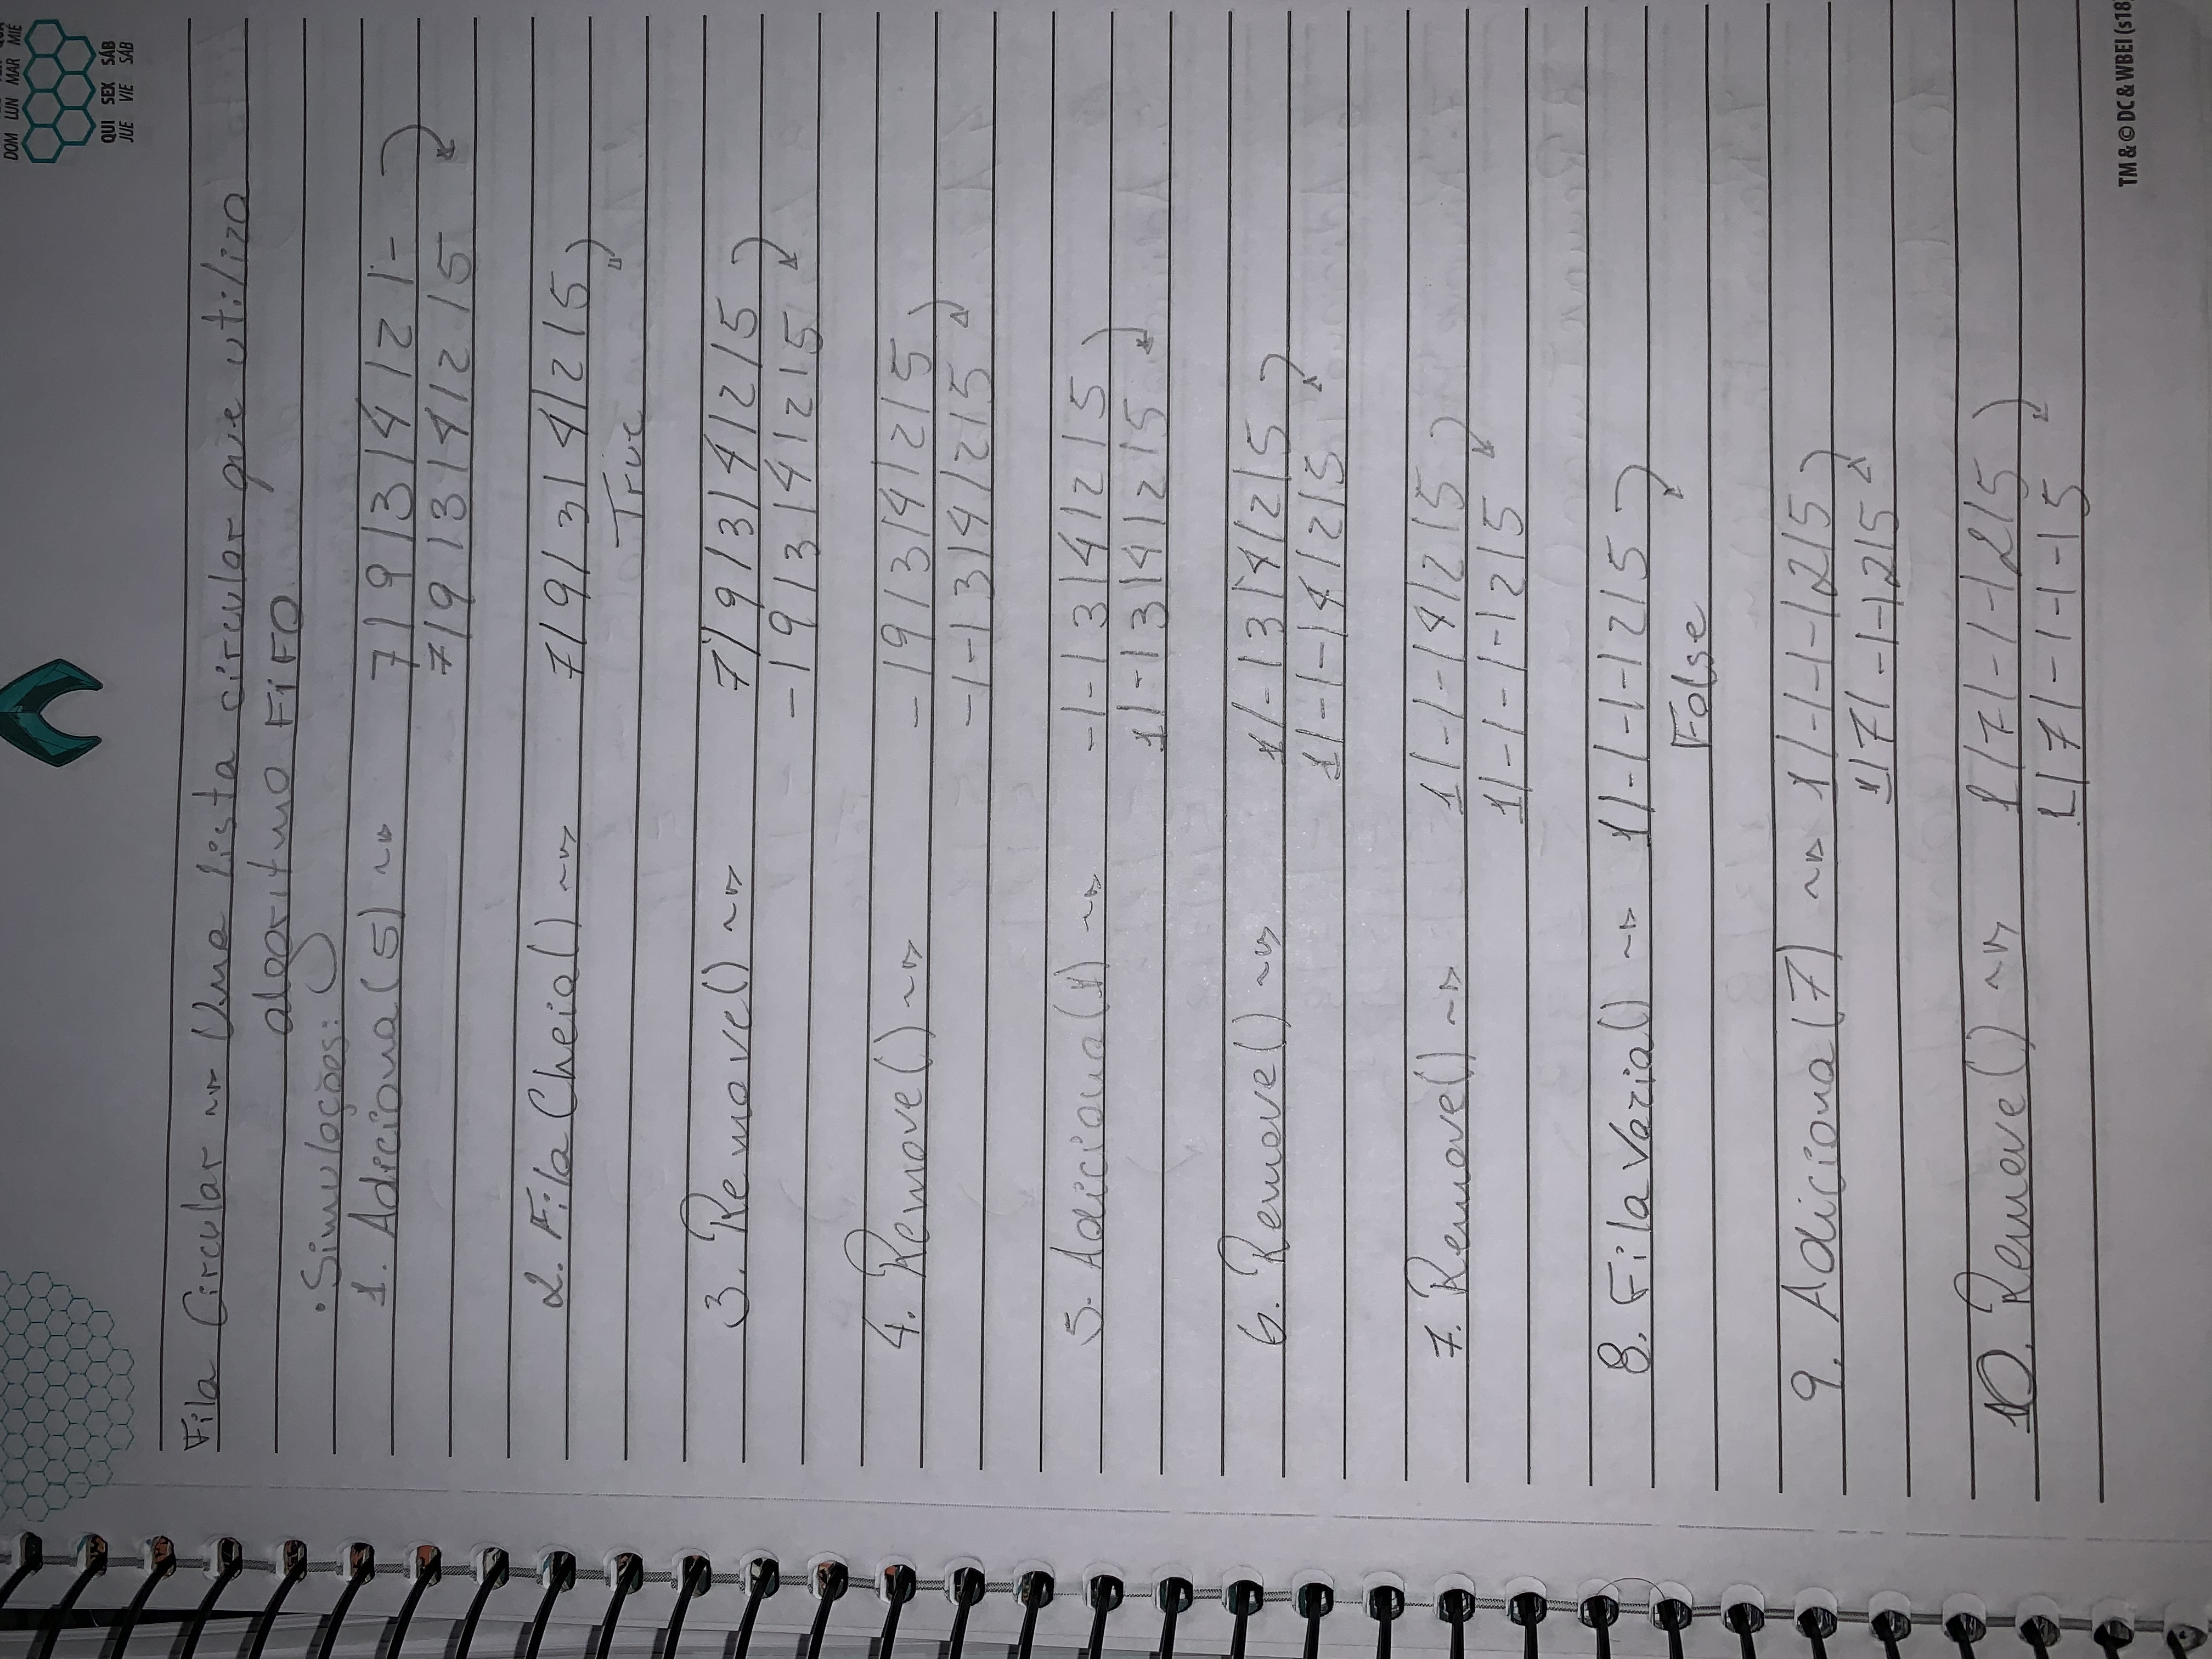 DOM LUN MAR MIÉ
QUI SEX SÁB
JUE VIE SÁB
Fila Circular ~> Uma lista circular que utiliza
algoritmo FiFO
• Simulações:
1. Adiciona(5) ~> 7|9|3|4|2|-
7|9|3|4|2|5
2. Fila Cheia() ~> 7|9|3|4|2|5
True
3. Remove() ~> 7|9|3|4|2|5
-|9|3|4|2|5
4. Remove() ~> -|9|3|4|2|5
-|-|3|4|2|5
5. Adiciona(1) ~> -|-|3|4|2|5
1|-|3|4|2|5
6. Remove() ~> 1|-|3|4|2|5
1|-|-|4|2|5
7. Remove() ~> 1|-|-|4|2|5
1|-|-|-|2|5
8. Fila Vazia() ~> 1|-|-|-|2|5
False
9. Adiciona(7) ~> 1|-|-|-|2|5
1|7|-|-|2|5
10. Remove() ~> 1|7|-|-|2|5
1|7|-|-|-|5
TM & © DC & WBEI (s18)